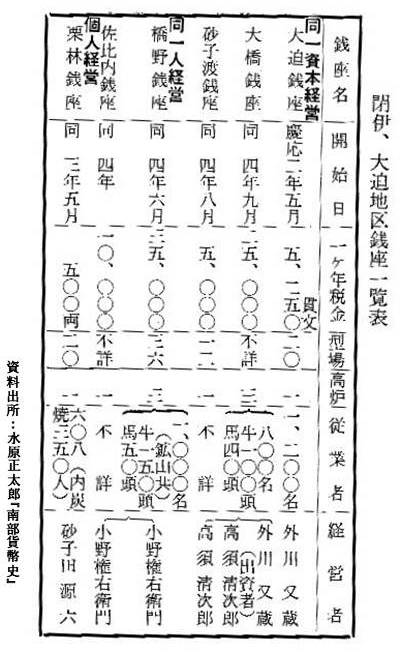 閉伊、大迫地区銭座一覧表
銭座名 開始日 一ヶ年税金 型場 高炉 従業者 経営者
同一資本経営
大迫銭座 慶応二年五月 五、二五〇貫文 二〇 一 一、二〇〇名 外川又蔵
大橋銭座 同 四年九月 二五、〇〇〇 不詳 三 八〇〇名 牛一〇〇頭 馬四〇頭 外川又蔵 (出資者) 高須清次郎
砂子渡銭座 同 四年八月 五、〇〇〇 一二 一 不詳 高須清次郎
同一人経営
橋野銭座 同 四年六月 三五、〇〇〇 三六 三 一、〇〇〇名 (鉱山共) 牛一五〇頭 馬五〇頭 小野権右衛門
佐比内銭座 同 四年 一〇、〇〇〇 不詳 一 不詳 小野権右衛門
個人経営
栗林銭座 同 三年五月 五〇〇両 二〇 一 六〇八(内炭焼三五〇人) 砂子田源六
資料出所:水原正太郎『南部貨幣史』